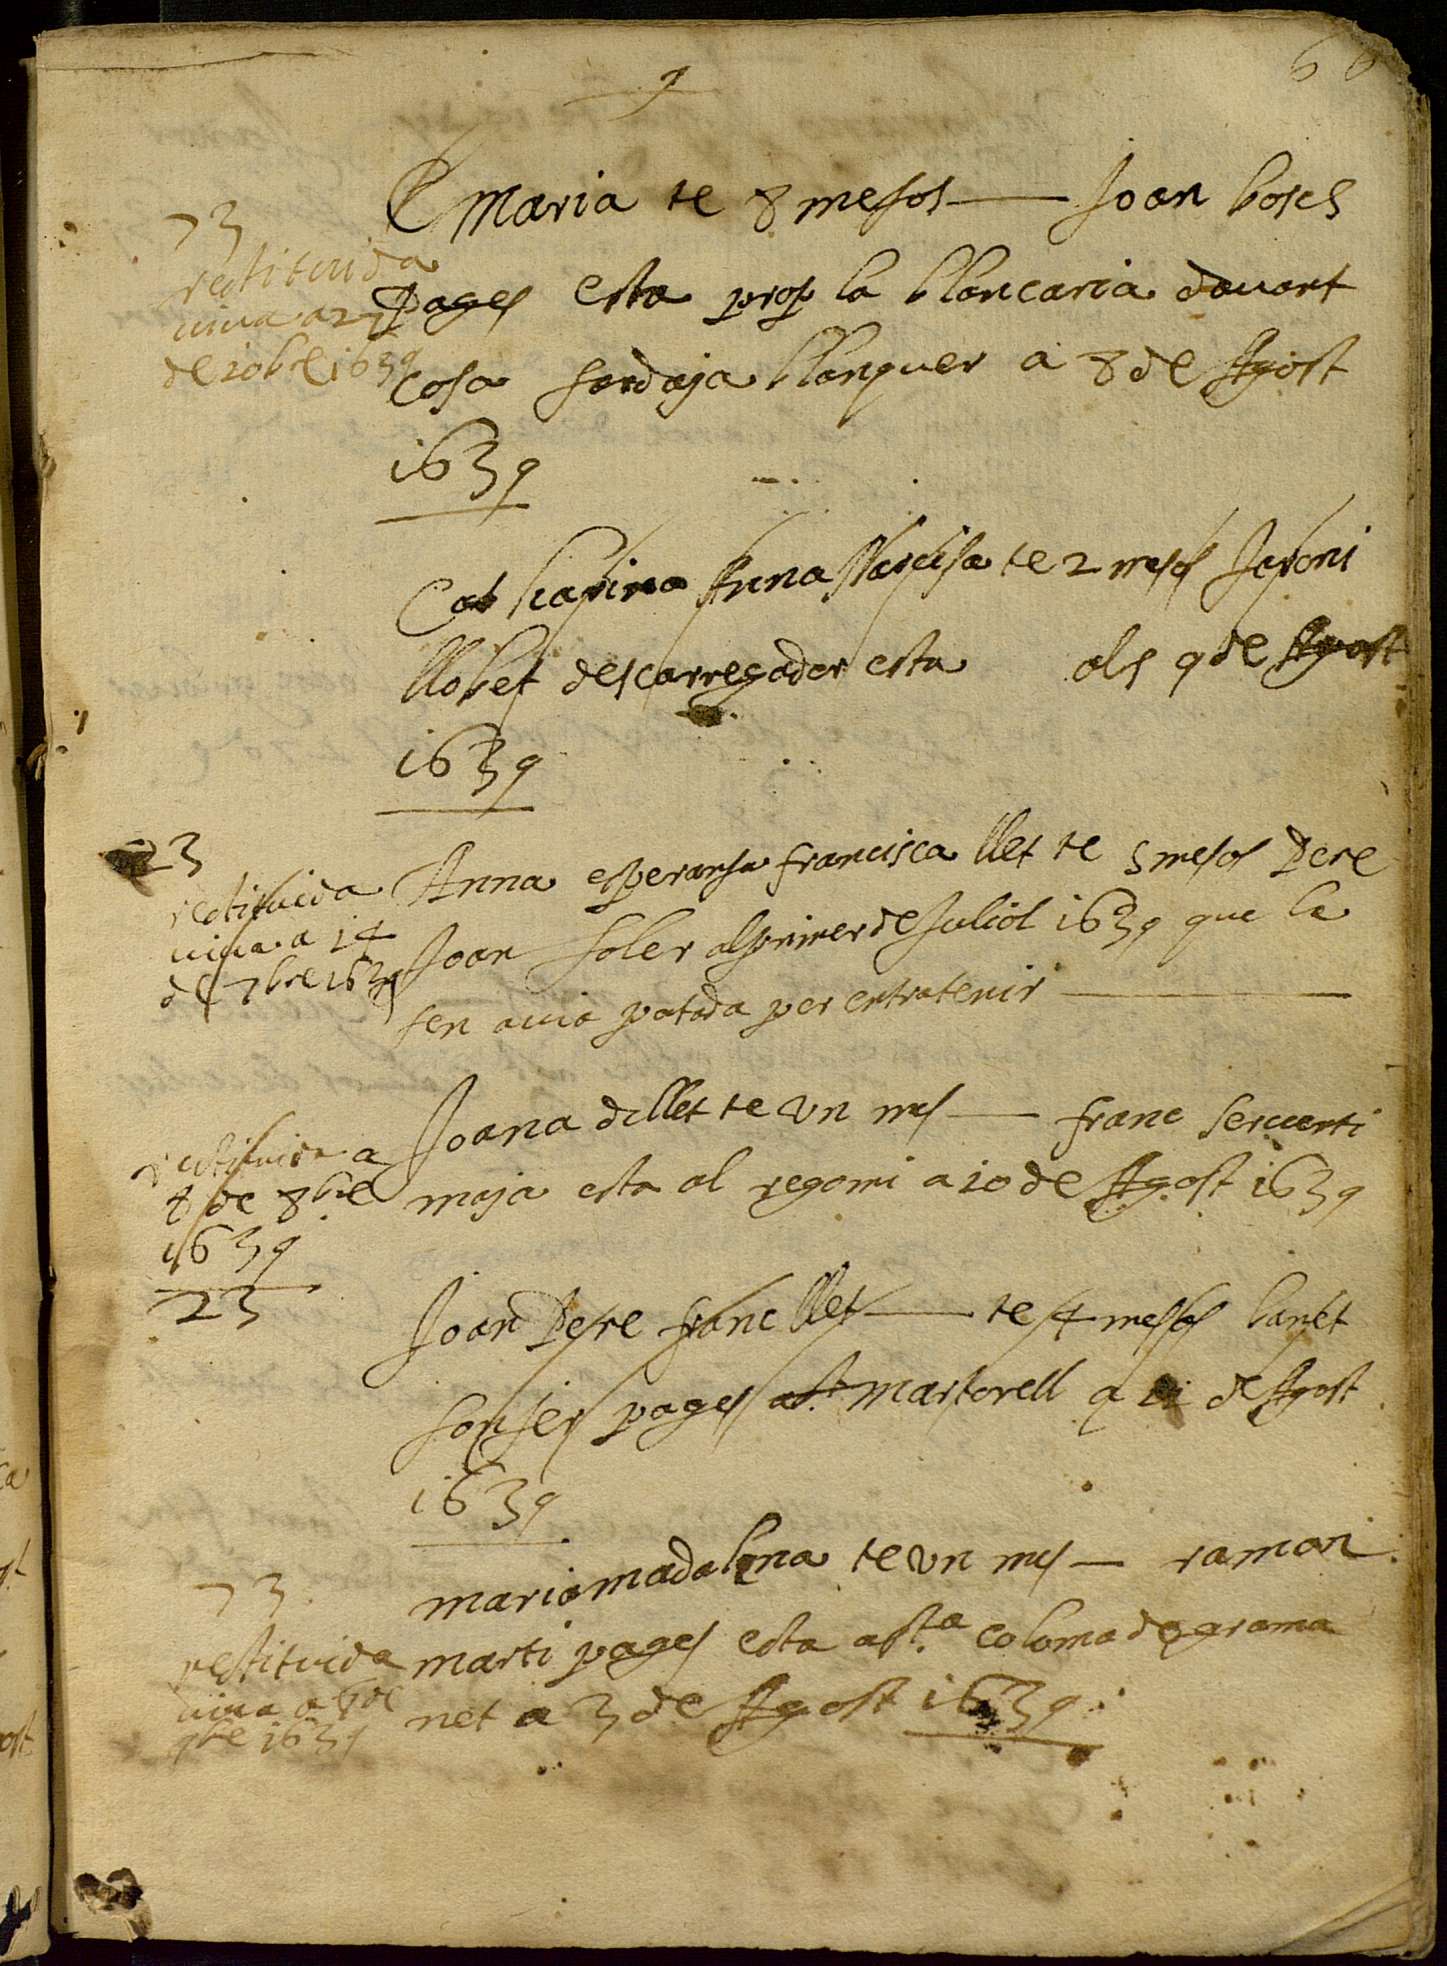 66
Maria te 8 mesos — Joan bosch
pages esta prop la blancaria dauant
Casa sardaja blanquer a 8 de Agost
1639
73
restituida
viua a 27
de 10bre 1639
Catharina Anna Narcisa te 2 mesos Jeroni
llobet descarregador esta als 9 de Agost
1639
Anna esperansa francisca llet te 5 mesos Pere
Joan soler al primer de Juliol 1639 que la
sen auia patada per entratenir
23
restituida
viua a 14
de 7bre 1639
Joana de llet te un mes — franc seruenti
maja esta al regomi a 10 de Agost 1639
restituida a
8 de 8bre
1639
23
Joan Pere franc llet — te 4 mesos banet
pages a st martorell a 11 de Agost
1639
maria madalena te un mes — ramon
marti pages esta a sta coloma de grama
net a 3 de Agost 1639
73
restituida
viua a 6 de
9bre 1639